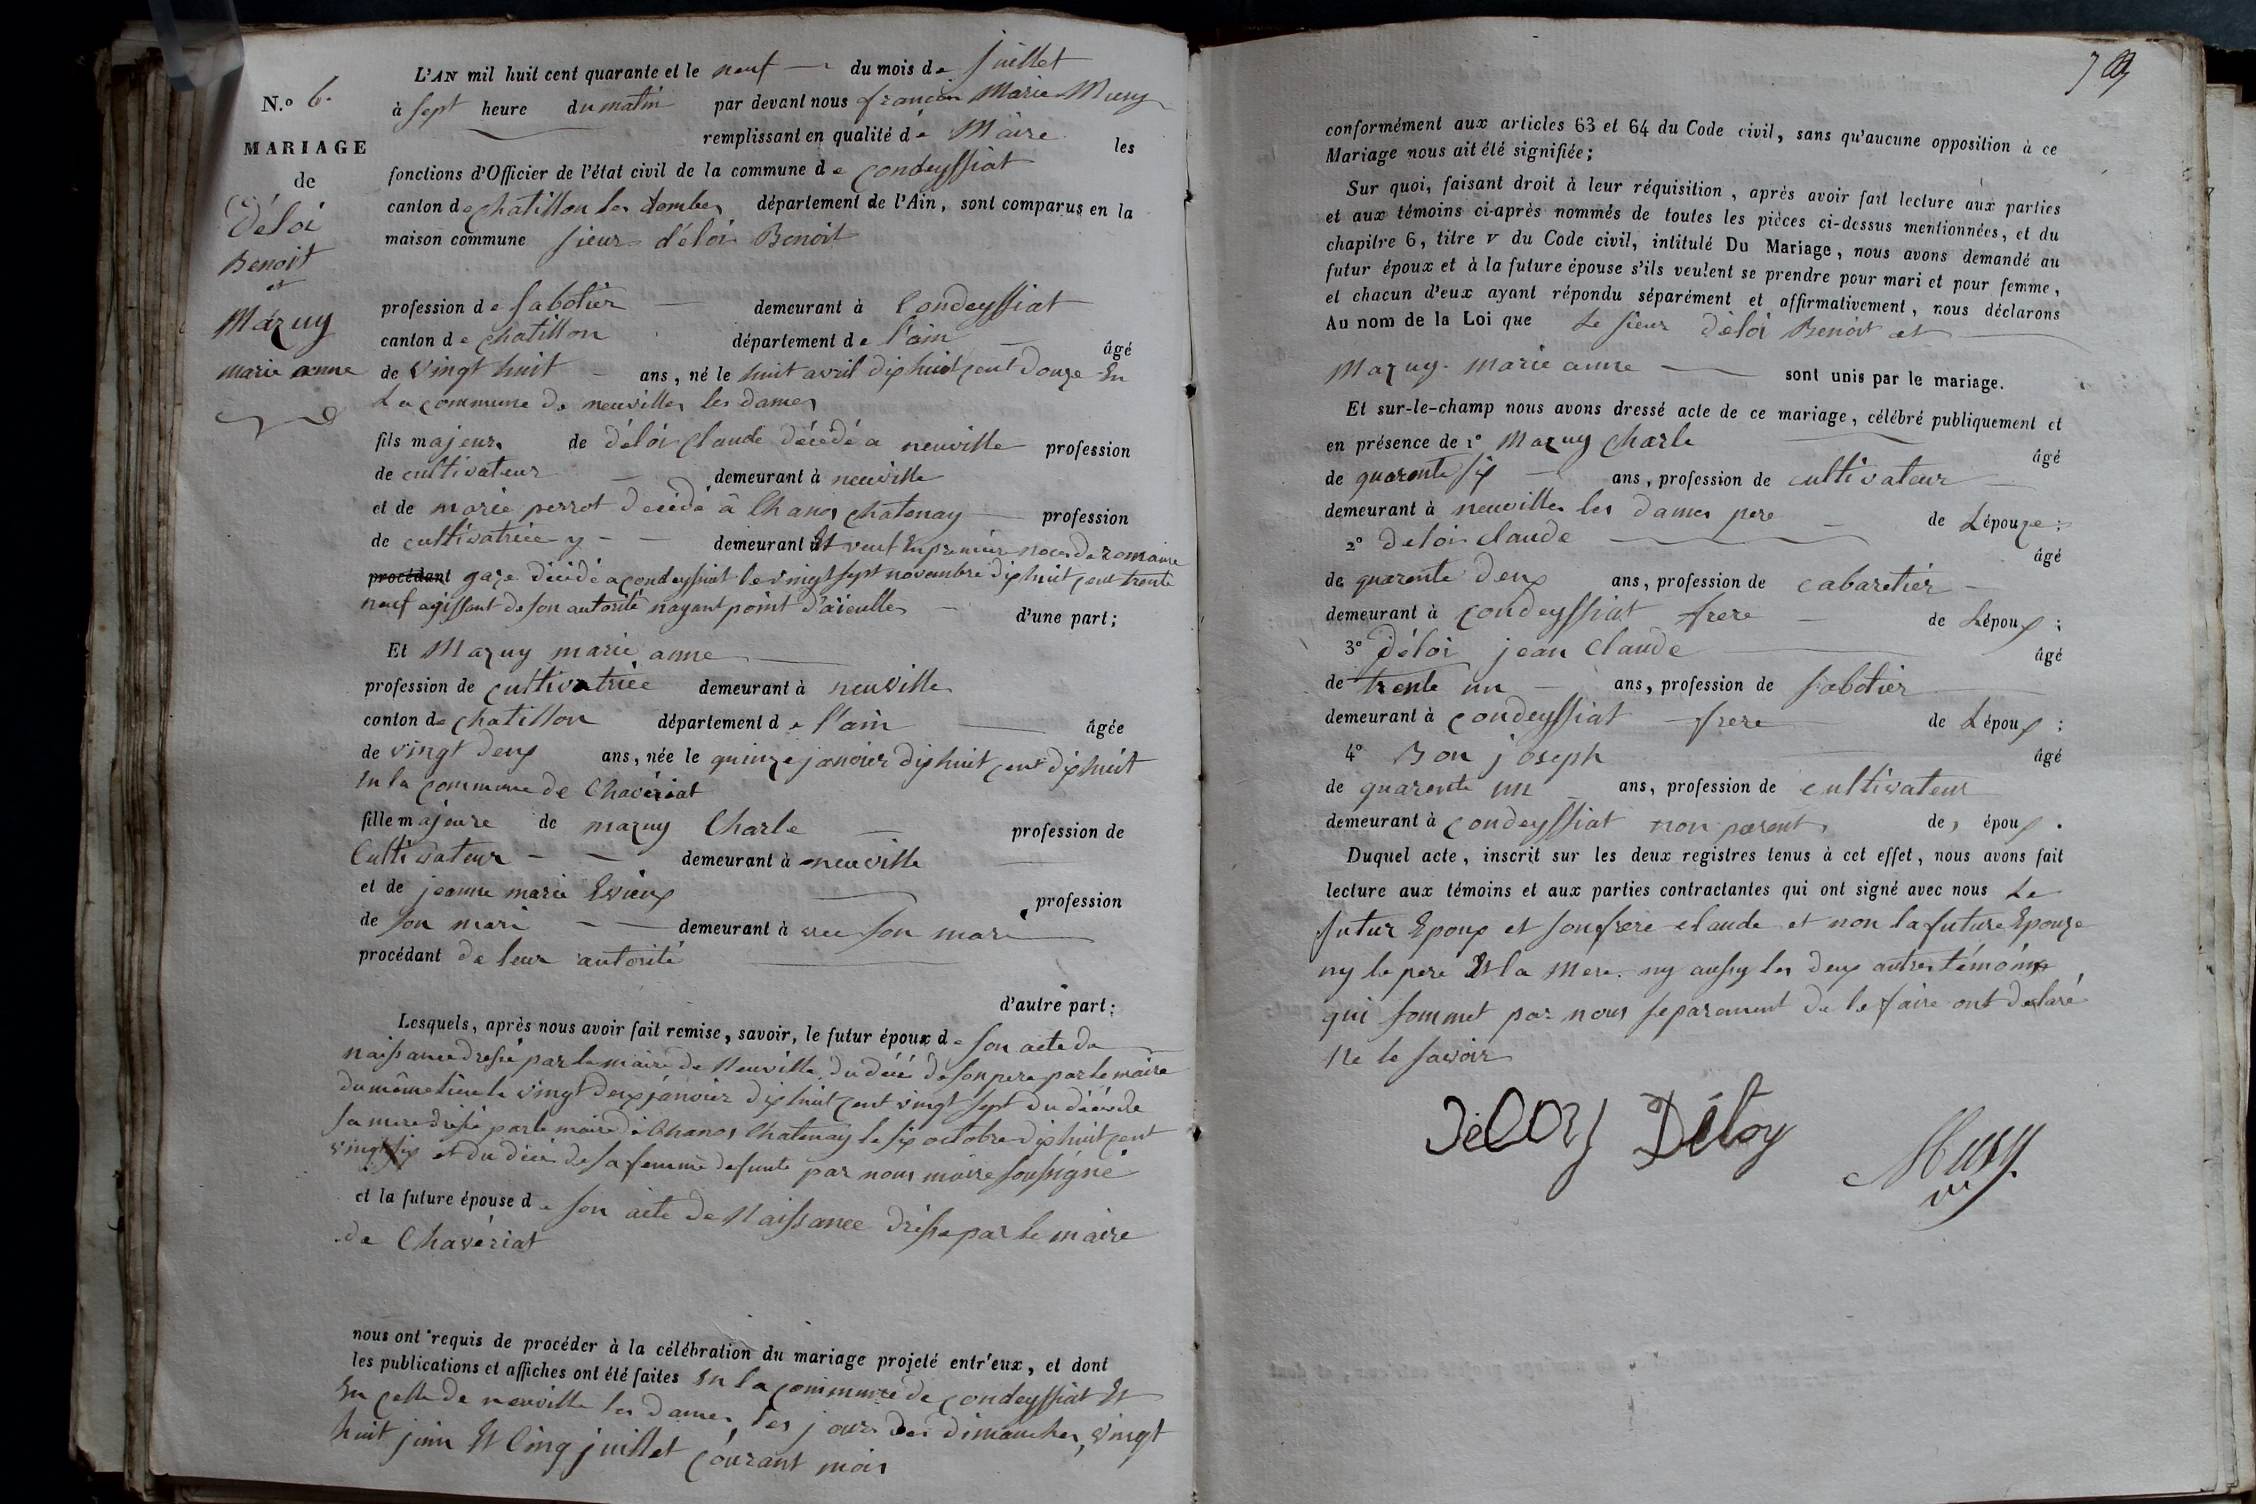 N.o 6.
MARIAGE
de
Déloi
Benoit
et
Mazuy
marie anne
L'AN mil huit cent quarante et le neuf du mois de juillet
à sept heure du matin par devant nous françois Marie Musy
remplissant en qualité de Maire les
fonctions d'Officier de l'état civil de la commune de Condeyssiat
canton de chatillon les dombes département de l'Ain, sont comparus en la
maison commune sieur déloi Benoit
profession de sabotier demeurant à Condeyssiat
canton de chatillon département de l'ain âgé
de vingt huit ans, né le huit avril dix huit cent douze En
La commune de neuvilles les dames
fils majeur de déloi Claude décédé a neuville profession
de cultivateur demeurant à neuville
et de marie perrot decedé à Chanos chatenay profession
de cultivatrice y demeurant Et veuf En premiere noces de romaine
procédant gaze décédé a condeyssiat le vingt sept novembre dix huit cent trente
neuf agissant de son autorité nayant point d'aieulles d'une part;
Et Mazuy marie anne
profession de cultivatrice demeurant à neuville
canton de chatillon département de l'ain âgée
de vingt deux ans, née le quinze janvier dix huit cent dix huit
En la commune de Chavériat
fille majeure de mazuy Charle profession de
Cultivateur demeurant à neuville
et de jeanne marie Evieux profession
de son mari demeurant à avec son mari
procédant de leur autorité
d'autre part;
Lesquels, après nous avoir fait remise, savoir, le futur époux de son acte de
naissance dressé par le maire de Neuville, du décé de son pere par le maire
du même lieu le vingt deux janvier dix huit cent vingt sept du décé de
sa mere dressé par le maire de Chanos Chatenay le six octobre dix huit cent
vingt six et du décé de sa femme defunte par nous maire soussigné
et la future épouse de son acte de Naissance dressé par le maire
de Chavériat
nous ont requis de procéder à la célébration du mariage projeté entr'eux, et dont
les publications et affiches ont été faites En la commune de condeyssiat Et
En celle de neuville les dames, les jours des dimanches, vingt
huit juin Et Cinq juillet courant mois
conformément aux articles 63 et 64 du Code civil, sans qu'aucune opposition à ce
Mariage nous ait été signifiée;
Sur quoi, faisant droit à leur réquisition, après avoir fait lecture aux parties
et aux témoins ci-après nommés de toutes les pièces ci-dessus mentionnées, et du
chapitre 6, titre v du Code civil, intitulé Du Mariage, nous avons demandé au
futur époux et à la future épouse s'ils veulent se prendre pour mari et pour femme,
et chacun d'eux ayant répondu séparément et affirmativement, nous déclarons
Au nom de la Loi que Le sieur déloi Benoit et
Mazuy marie anne sont unis par le mariage.
Et sur-le-champ nous avons dressé acte de ce mariage, célébré publiquement et
en présence de 1° Mazuy Charle âgé
de quarente six ans, profession de cultivateur
demeurant à neuvilles les dames pere de Lépouze;
2° deloi claude âgé
de quarente deux ans, profession de cabaretier
demeurant à condeyssiat frere de Lépoux;
3° déloi jean Claude âgé
de trente un ans, profession de sabotier
demeurant à condeyssiat frere de Lépoux;
4° Bon joseph âgé
de quarente un ans, profession de cultivateur
demeurant à condeyssiat non parent de, époux.
Duquel acte, inscrit sur les deux registres tenus à cet effet, nous avons fait
lecture aux témoins et aux parties contractantes qui ont signé avec nous Le
futur Epoux et son frere claude et non la future Epouze
ny le pere Et la Mere. ny aussy les deux autres témoins
qui sommet par nous separament de le faire ont déclaré
Ne le savoir
déLOy Déloy
Musy